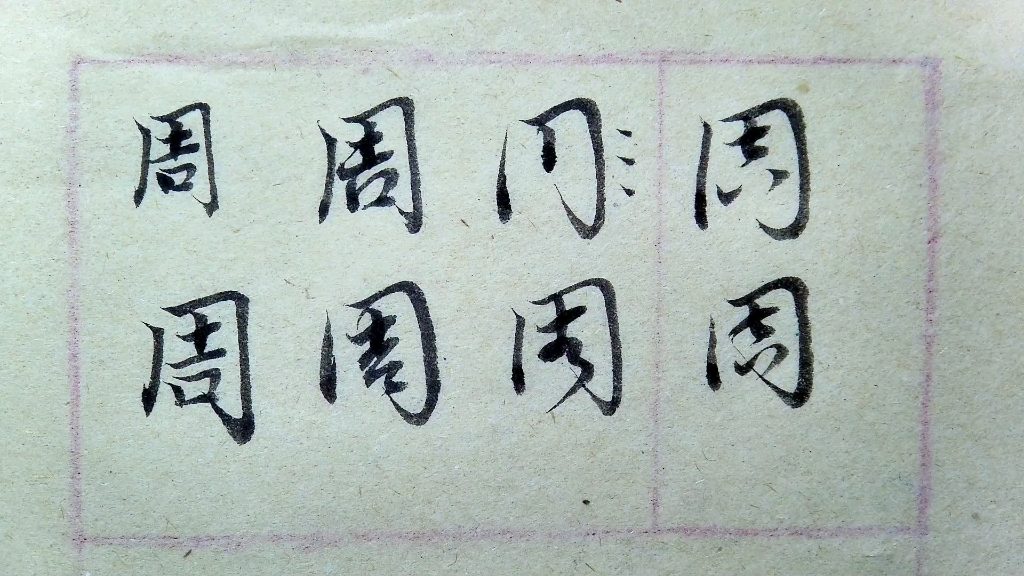 周周周周
周周周周